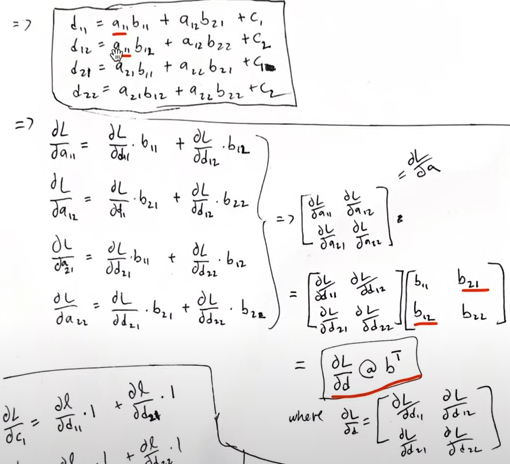 => d₁₁ = a₁₁b₁₁ + a₁₂b₂₁ + c₁
d₁₂ = a₁₁b₁₂ + a₁₂b₂₂ + c₂
d₂₁ = a₂₁b₁₁ + a₂₂b₂₁ + c₁
d₂₂ = a₂₁b₁₂ + a₂₂b₂₂ + c₂
=> ∂L/∂a₁₁ = ∂L/∂d₁₁ · b₁₁ + ∂L/∂d₁₂ · b₁₂
∂L/∂a₁₂ = ∂L/∂d₁ · b₂₁ + ∂L/∂d₁₂ · b₂₂
∂L/∂a₂₁ = ∂L/∂d₂₁ · b₁₁ + ∂L/∂d₂₂ · b₁₂
∂L/∂a₂₂ = ∂L/∂d₂₁ · b₂₁ + ∂L/∂d₂₂ · b₂₂
= ∂L/∂a
=> [∂L/∂a₁₁ ∂L/∂a₁₂
∂L/∂a₂₁ ∂L/∂a₂₂]
= [∂L/∂d₁₁ ∂L/∂d₁₂ [b₁₁ b₂₁
∂L/∂d₂₁ ∂L/∂d₂₂] b₁₂ b₂₂]
= ∂L/∂d @ bᵀ
where ∂L/∂d = [∂L/∂d₁₁ ∂L/∂d₁₂
∂L/∂d₂₁ ∂L/∂d₂₂]
∂L/∂c₁ = ∂l/∂d₁₁ · 1 + ∂l/∂d₂₁ · 1